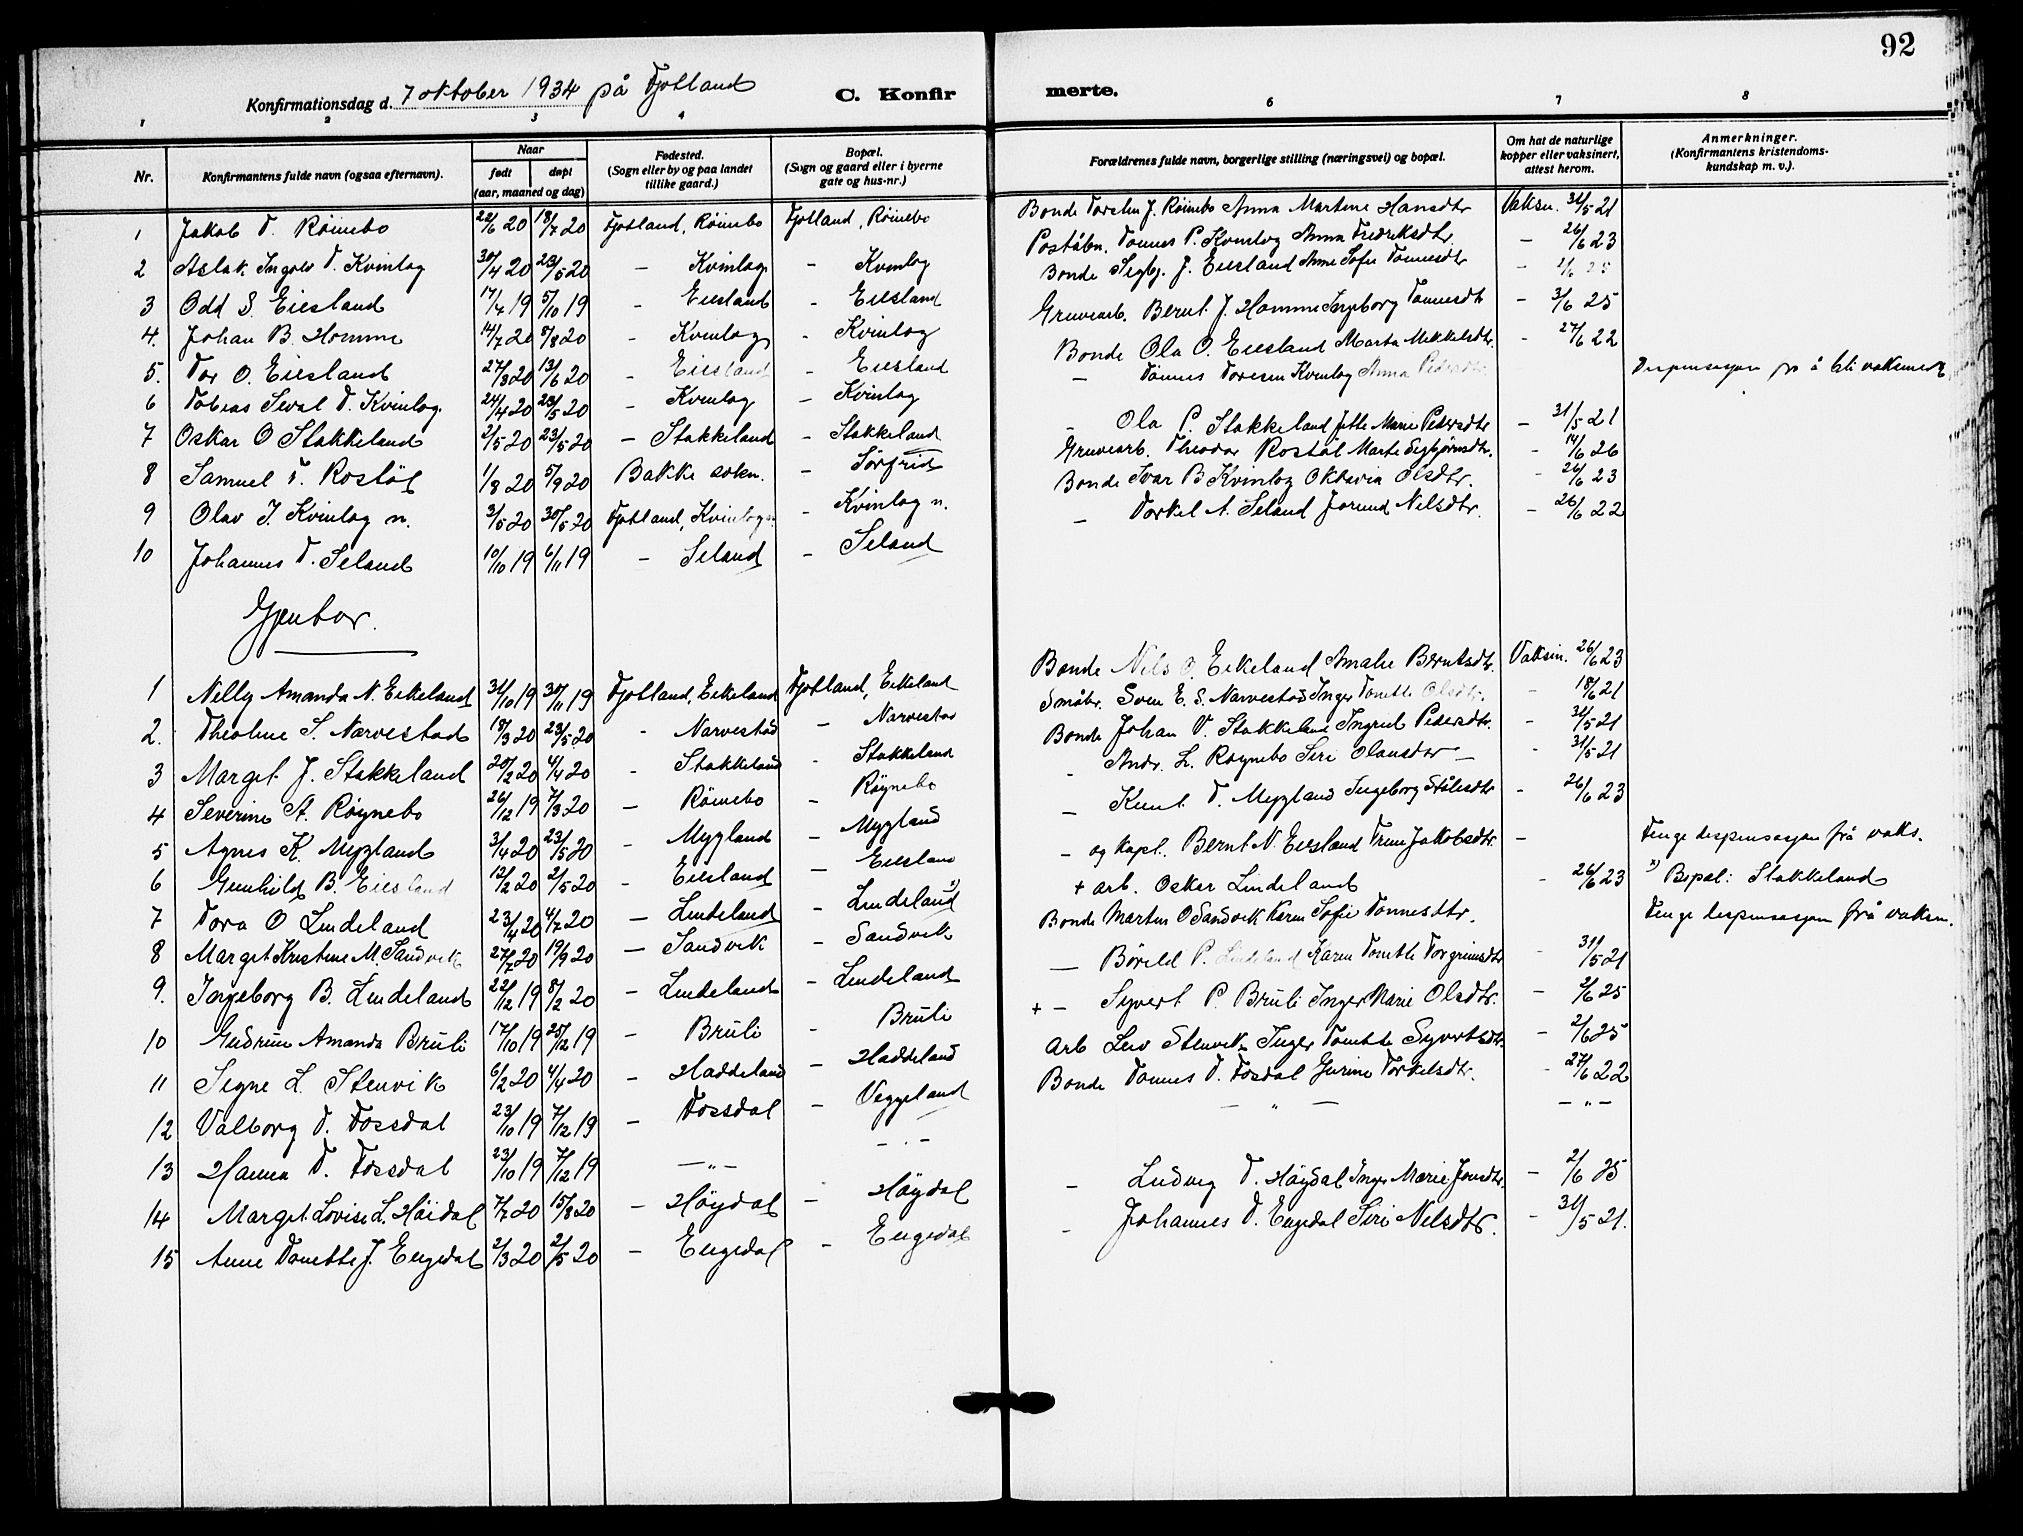 92
Konfirmationsdag d. 7 oktober 1934 på Fjotland
C. Konfirmerte.
1 2 3 4 6 7 8
Nr. Konfirmantens fulde navn (ogsaa efternavn). Naar født døpt (aar, maaned og dag) Fødested. (Sogn eller by og paa landet tillike gaard.) Bopæl. (Sogn og gaard eller i byerne gate og hus-nr.) Forældrenes fulde navn, borgerlige stilling (næringsvei) og bopæl. Om hat de naturlige kopper eller vaksinert, attest herom. Anmerkninger. (Konfirmantens kristendomskundskap m. v.).
1 Jakob T. Röinebo 22/6 20 18/7 20 Fjotland, Röinebo Fjotland, Röinebo Bonde Torsten J. Röinebo Anna Martine Hansdtr Vaksn. 31/5 21
2 Aslak Ingolv T. Kvinlog 30/4 20 23/5 20 – Kvinlog – Kvinlog Poståbn. Tönnes P. Kvinlog Anna Fredriksdtr. – 26/6 23
3 Odd S. Eiesland 17/4 19 5/10 19 – Eiesland – Eiesland Bonde Sigbj. J. Eiesland Anne Sofie Tönnesdtr – 2/6 25
4. Johan B. Homme 14/7 20 8/8 20 – Kvinlog – Kvinlog Gruvearb. Bernt J. Homme Ingeborg Tönnesdtr – 3/6 25
5. Tor O. Eiesland 27/3 20 13/6 20 – Eiesland – Eiesland Bonde Ola O. Eiesland Marta Mikkelsdtr. – 27/6 22
6 Tobias Seval T. Kvinlog. 24/4 20 23/5 20 – Kvinlog – Kvinlog – Tönnes Toresen Kvinlog Anna Pedersdtr Dispensasjon på å bli vaksinert
7 Oskar O Stakkeland 2/5 20 23/5 20 – Stakkeland – Stakkeland – Ola P. Stakkeland Jette Marie Pedersdtr – 31/5 21
8 Samuel T. Rostöl 1/8 20 5/9 20 Bakke sokn. – Sørfrid Gruvearb. Theodor Rostöl Marte Sigbjørnsdtr. – 14/6 26
9 Olav I. Kvinlog n. 3/5 20 30/5 20 Fjotland, Kvinlog n. – Kvinlog n. Bonde Ivar B Kvinlog Oktavia Olsdtr. – 26/6 23
10 Johannes T. Seland 10/10 19 6/11 19 – Seland – Seland – Torkel A. Seland Jorund Nilsdtr. – 26/6 22
Gjentor.
1 Nelly Amanda N. Eikeland 31/10 19 30/11 19 Fjotland, Eikeland Fjotland, Eikeland Bonde Nils O. Eikeland Amalie Berntsdtr. Vaksin. 26/6 23
2. Theoline S. Narvestad 18/3 20 23/5 20 – Narvestad – Narvestad Småbr. Sven E. S. Narvestad Inger Tonette Olsdtr. – 18/6 21
3 Margit J. Stakkeland 20/2 20 4/4 20 – Stakkeland – Stakkeland Bonde Johan V. Stakkeland Ingrid Pedersdtr. – 31/5 21
4 Severine A. Röynebo 26/12 19 7/3 20 – Röinebo – Röynebo – Andr. L. Röynebo Siri Olausdtr – – 31/5 21
5 Agnes K. Mygland 3/4 20 23/5 20 – Mygland – Mygland – Knut T. Mygland Ingeborg Ståledtr – 26/6 23
6 Gunhild B. Eiesland 12/2 20 2/5 20 – Eiesland – Eiesland – og kapt. Bernt N. Eiesland Trine Jakobsdtr. – Fenge dispensasjon frå vaks.
7 Tora O Lindeland 23/4 20 4/7 20 – Lindeland – Lindeland x) + arb. Oskar Lindeland – 26/6 23 x) Bopæl: Stakkeland
8 Margit Kristine M. Sandvik 27/7 20 19/9 20 – Sandvik – Sandvik Bonde Martin O Sandvik Karen Sofie Tonnesdtr. Fenge dispensasjon frå vaksn.
9. Ingeborg B. Lindeland 22/12 19 8/2 20 – Lindeland – Lindeland – Böreld P. Lindeland Karen Tonette Torgrimsdtr – 31/5 21
10 Gudrun Amanda Bruli 17/10 19 25/12 19 – Bruli – Bruli + – Syvert P. Bruli Inger Marie Olsdtr. – 2/6 25
11 Signe L. Stenvik 6/2 20 4/4 20 – Haddeland – Haddeland Arb Leiv Stenvik Inger Tonette Syvertsdtr. – 2/6 25
12 Valborg T. Fossdal 23/10 19 7/12 19 – Fossdal – Veggeland Bonde Tonnes T. Fosdal Jurine Torkelsdtr. – 27/6 22
13 Hanna T. Fossdal 23/10 19 7/12 19 – „ – – „ – – „ – – „ –
14 Margit Lovise L. Höidal 7/7 20 15/8 20 – Höydal – Höydal – Ludvig T. Höydal Inger Marie Jonsdtr. – 2/6 25
15 Anne Tonette J. Engedal 2/3 20 2/5 20 – Engedal – Engedal – Johannes T. Engedal Siri Nilsdtr. – 31/5 21.